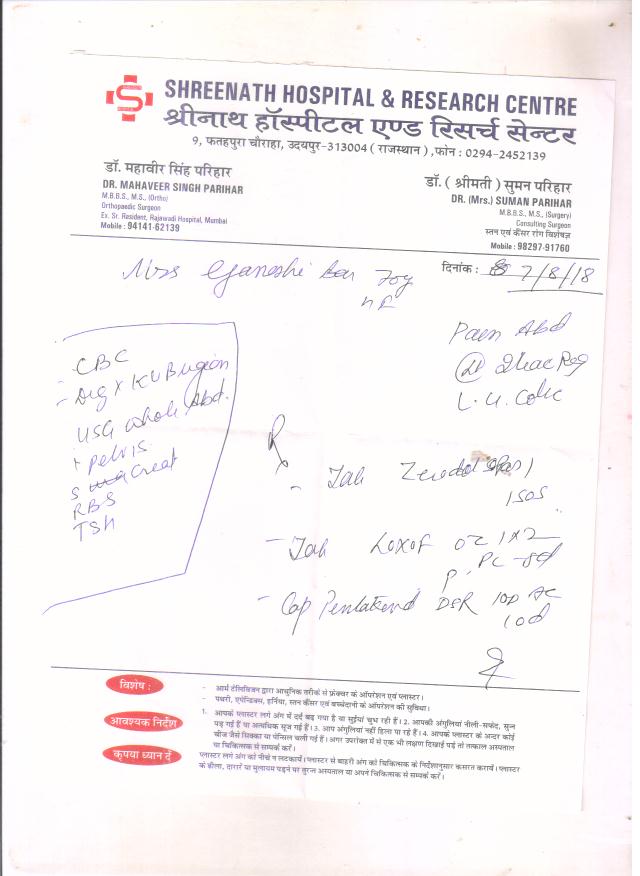 SHREENATH HOSPITAL & RESEARCH CENTRE
श्रीनाथ हॉस्पीटल एण्ड रिसर्च सेन्टर
9, फतहपुरा चौराहा, उदयपुर-313004 ( राजस्थान ) ,फोन : 0294-2452139
डॉ. महावीर सिंह परिहार
DR. MAHAVEER SINGH PARIHAR
M.B.B.S., M.S., (Ortho)
Orthopaedic Surgeon
Ex. Sr. Resident, Rajawadi Hospital, Mumbai
Mobile : 94141-62139
डॉ. ( श्रीमती ) सुमन परिहार
DR. (Mrs.) SUMAN PARIHAR
M.B.B.S., M.S., (Surgery)
Consulting Surgeon
स्तन एवं कैंसर रोग विशेषज्ञ
Mobile : 98297-91760
दिनांक : 7/8/18
Mrs Ganeshi
Pain Abd
- CBC
- Dig X KUB region
USG whole Abd.
+ Pelvis
S Creat
RBS
TSH
- Tab
1 SOS
- Tab Loxof OZ 1x2
- Cap DSR 1OD AC
10d
विशेष :
- आर्म टेलिविजन द्वारा आधुनिक तरीके से फ्रेक्चर के ऑपरेशन एवं प्लास्टर।
- पथरी, एपेन्डिक्स, हर्निया, स्तन कैंसर एवं बच्चेदानी के ऑपरेशन की सुविधा।
आवश्यक निर्देश
1. आपके प्लास्टर लगे अंग में दर्द बढ़ गया है या सुईयां चुभ रही हैं। 2. आपकी अंगुलियां नीली-सफेद, सुन्न
पड़ गई हैं या अत्यधिक सूज गई हैं। 3. आप अंगुलियां नहीं हिला पा रहे हैं। 4. आपके प्लास्टर के अन्दर कोई
चीज जैसे सिक्का या पेन्सिल चली गई हैं। अगर उपरोक्त में से एक भी लक्षण दिखाई पड़े तो तत्काल अस्पताल
या चिकित्सक से सम्पर्क करें।
कृपया ध्यान दें
प्लास्टर लगे अंग को नीचे न लटकायें। प्लास्टर से बाहरी अंग को चिकित्सक के निर्देशानुसार कसरत करायें। प्लास्टर
के ढीला, दरारें या मुलायम पड़ने पर तुरन्त अस्पताल या अपने चिकित्सक से सम्पर्क करें।